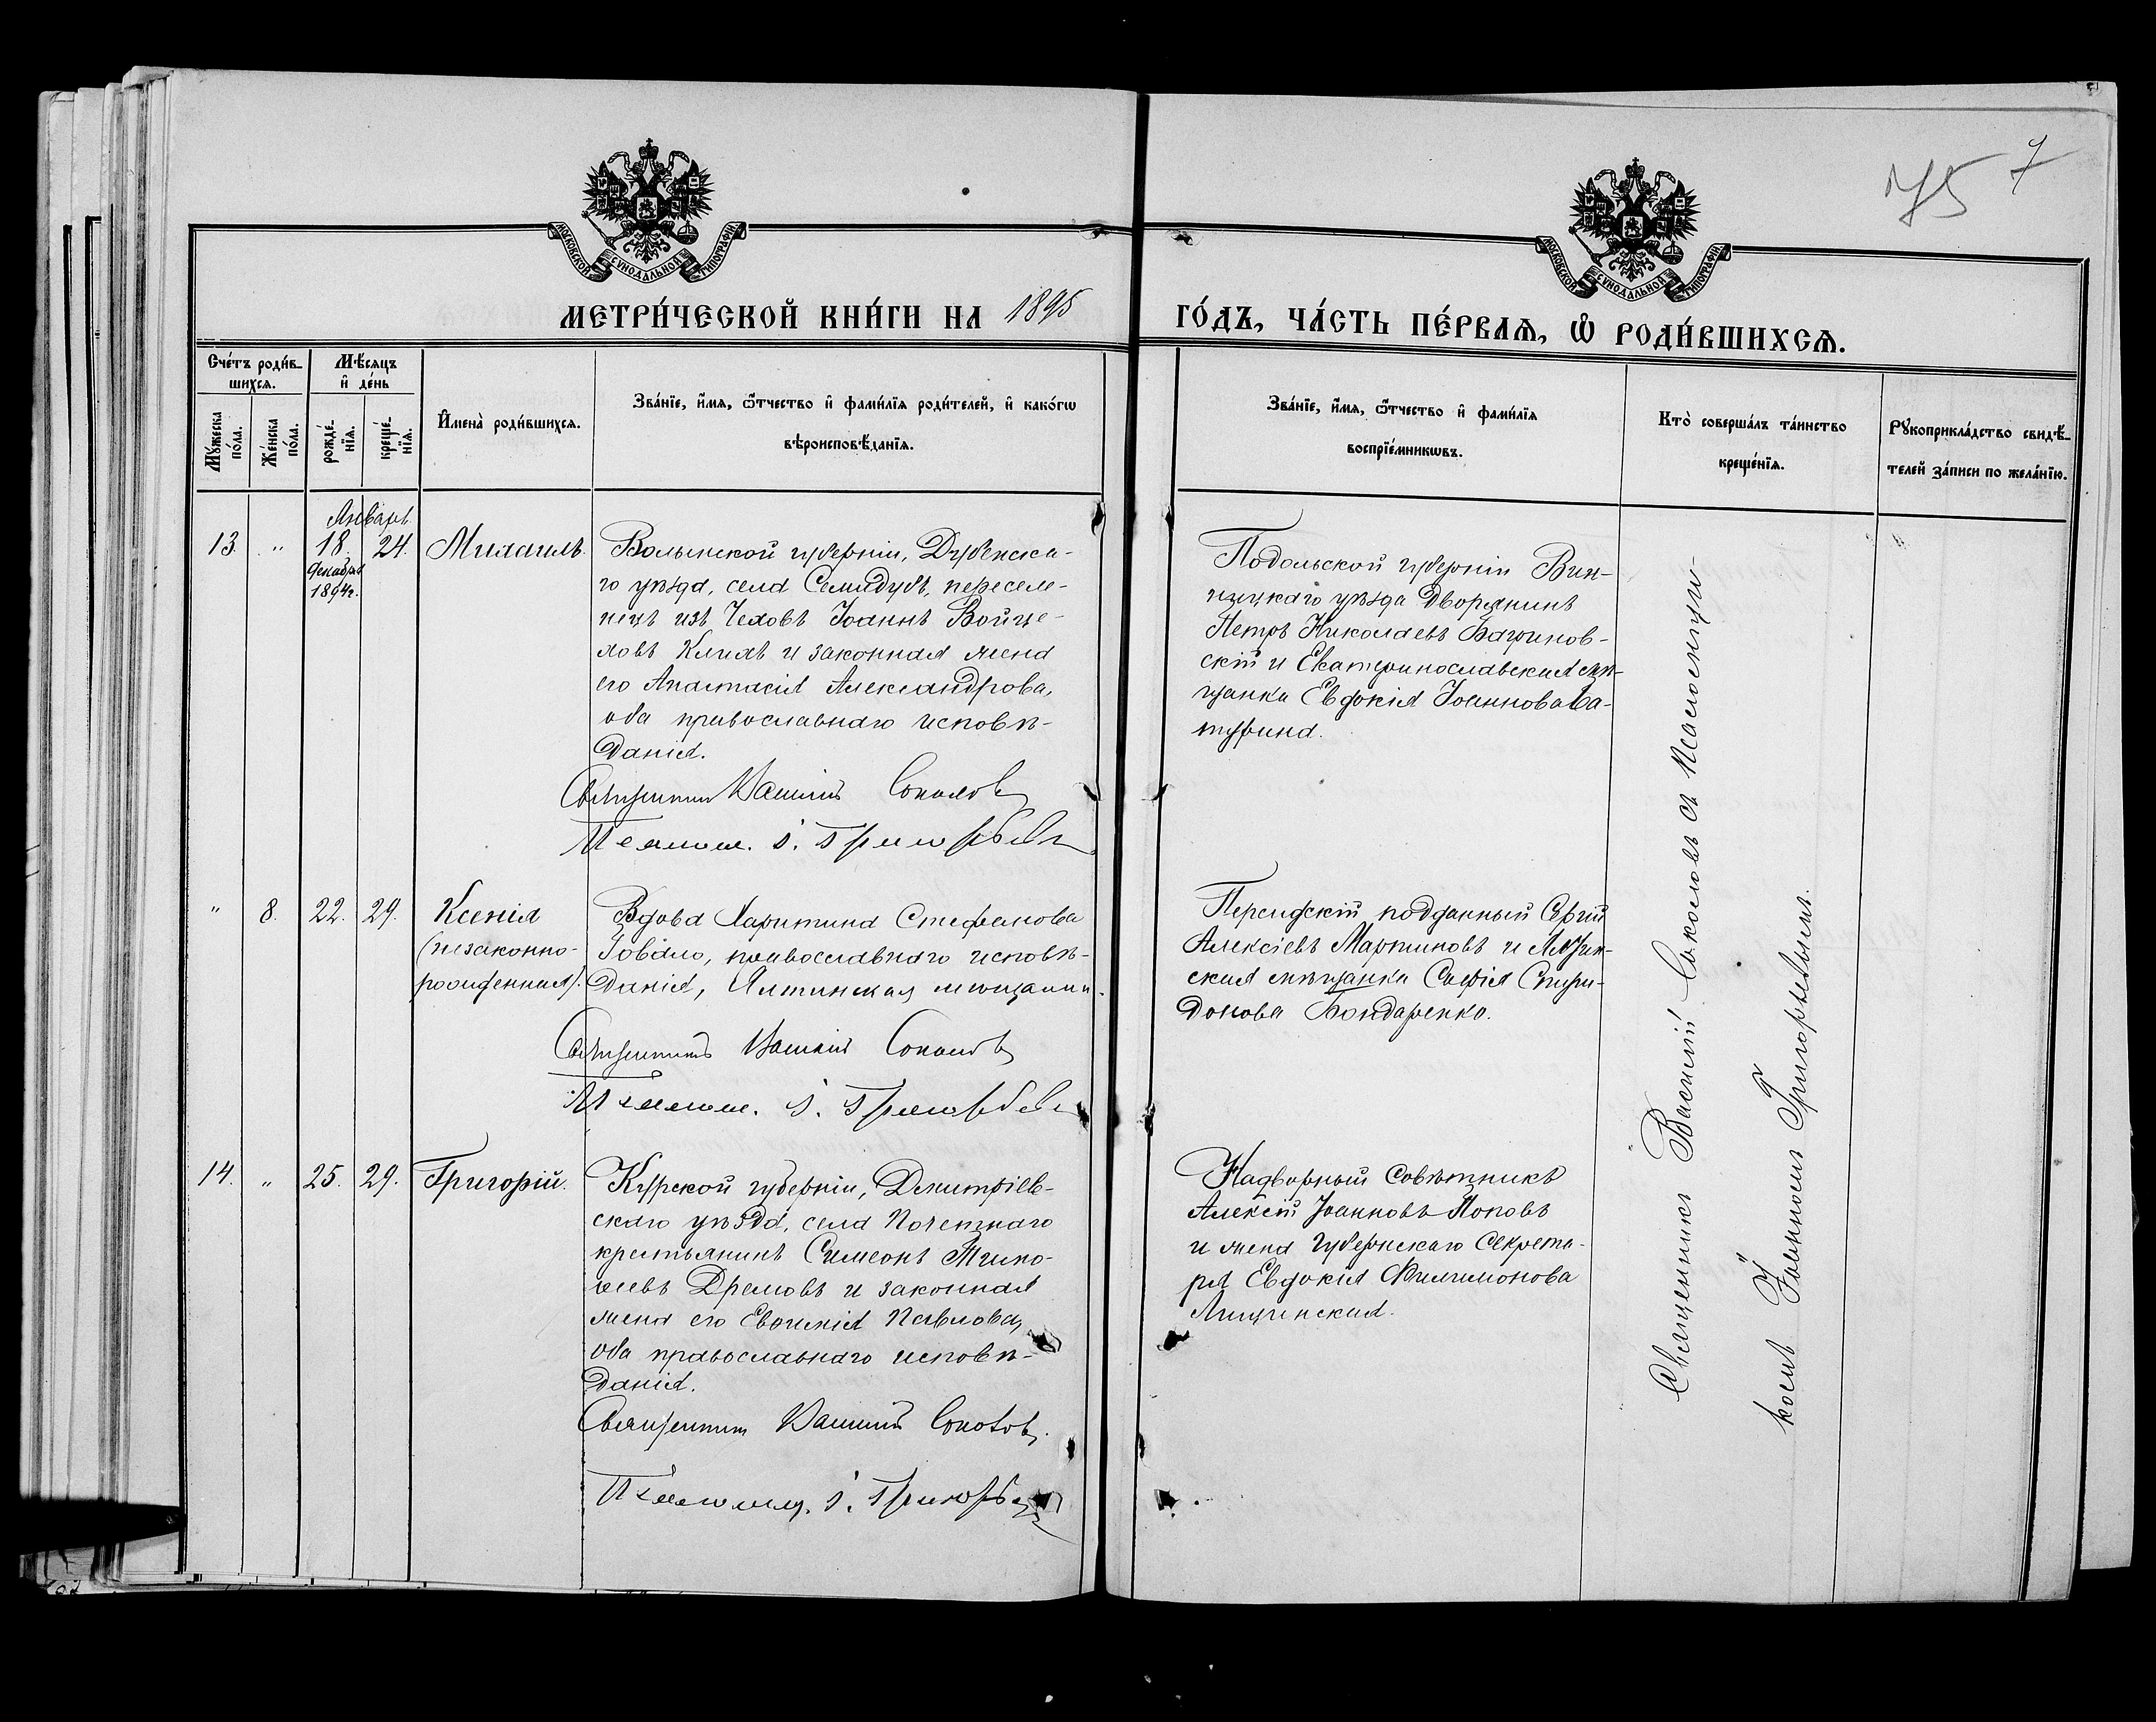 75 7
МОСКОВСКОЙ СѴНОДАЛЬНОЙ ТИПОГРАФІИ
МОСКОВСКОЙ СѴНОДАЛЬНОЙ ТИПОГРАФІИ
МЕТРИ́ЧЕСКОЙ КНИ́ГИ НА 1895 ГО́ДЪ, ЧА́СТЬ ПЕ́РВАѦ, Ѡ РОДИ́ВШИХСѦ.
Сче́тъ роди́в-
шихсѧ.
Мꙋжеска по́ла.
Же́нска по́ла.
Мѣ́сѧцъ
и҆ де́нь
рожде́-
нїѧ.
креще́-
нїѧ.
И҆мена̀ роди́вшихсѧ.
Зва́нїе, и҆́мѧ, ѻ҆́тчество и҆ фами́лїѧ роди́телей, и҆ како́гѡ
вѣроисповѣ́данїѧ.
Зва́нїе, и҆́мѧ, ѻ҆́тчество и҆ фами́лїѧ
воспрїе́мникѡвъ.
Кто̀ соверша́лъ та́инство
креще́нїѧ.
Рꙋкоприкла́дство свидѣ́-
телей за́писи по жела́нїю.
Январь
13. " 18. 24. Михаилъ.
Декабря
1894г.
Волынской губерніи, Дубенска-
го уѣзда, села Семидубъ, переселе-
нецъ изъ Чеховъ Іоаннъ Войце-
ховъ Климъ и законная жена
его Анастасія Александрова,
оба православнаго исповѣ-
данія.
Священникъ Василій Соколовъ
Псаломщ. І. Григорьевъ
Подольской губерніи Вин-
ницкаго уѣзда дворянинъ
Петръ Николаевъ
скій и Екатеринославская мѣ-
щанка Евдокія Іоаннова Ба-
турина.
" 8. 22. 29. Ксенія
(незаконно-
рожденная).
Вдова Харитина Стефанова
православнаго исповѣ-
данія, Ялтинская мѣщанка.
Священникъ Василій Соколовъ
Псаломщ. І. Григорьевъ
Персидскій подданный Сергій
Алексіевъ Мартиновъ и
ская мѣщанка Софія Спири-
донова Бондаренко.
14. " 25. 29. Григорій.
Курской губерніи, Дмитріев-
скаго уѣзда, села Почепнаго
крестьянинъ Симеонъ Тимо-
ѳеевъ Дремовъ и законная
жена его Евгенія Павлова,
оба православнаго исповѣ-
данія.
Священникъ Василій Соколовъ.
Псаломщ. І. Григорьевъ
Надворный Совѣтникъ
Алексій Іоанновъ Поповъ
и жена Губернскаго Секрета-
ря Евдокія Филимонова
Священникъ Василій Соколовъ съ псаломщи-
комъ Іоанномъ Григорьевымъ.